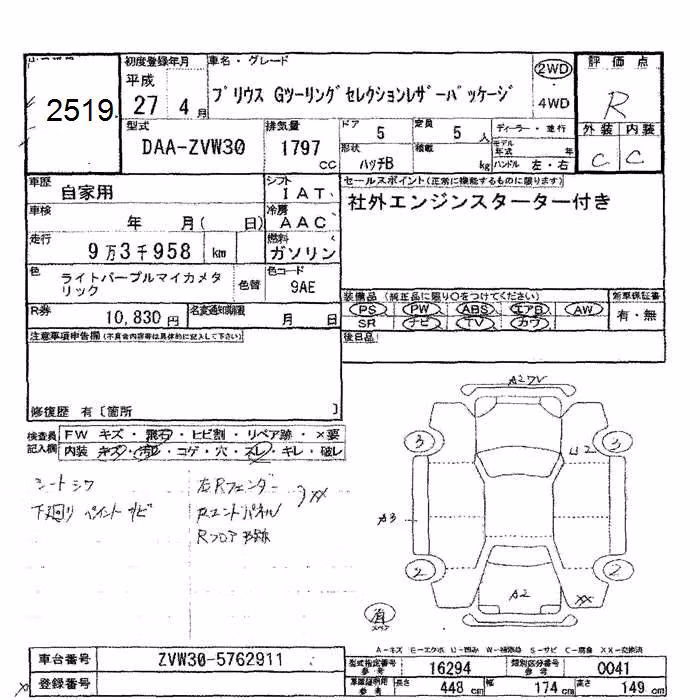 2519
初度登録年月
平成
27 4月
車名・グレード
プリウス Gツーリングセレクションレザーパッケージ
2WD
4WD
評価点
R
外装 内装
C C
型式
DAA-ZVW30
排気量
1797
CC
ドア
5
定員
5 人
形状
ハッチB
積載
kg
ディーラー・並行
モデル年式 年
ハンドル 左・右
車歴
自家用
シフト
IAT
セールスポイント(正常に機能するものに限ります)
社外エンジンスターター付き
車検
年 月( 日)
冷房
AAC
走行
9万3千958 km
燃料
ガソリン
色
ライトパープルマイカメタリック
色替
色コード
9AE
装備品(純正品に限り○をつけてください)
PS PW ABS エアB AW
SR ナビ TV カワ
新車保証書
有・無
R券
10,830 円
名変通知期限
月 日
後日品
注意事項申告欄(不具合内容等は具体的に記入して下さい)
修復歴 有〔箇所 〕
検査員記入欄
FW キズ・飛石・ヒビ割・リペア跡・×要
内装 キズ・汚れ・コゲ・穴・スレ・キレ・破レ
シートシワ
下廻り ペイント サビ
右Rフェンダー
Rエンドパネル
XX
Rフロア
A2 V
3
3
U2
A3
2
2
A2
XX
スペア
A-キズ E-エクボ U-凹み W-補修跡 S-サビ C-腐食 XX-交換済
車台番号
ZVW30-5762911
登録番号
型式指定番号 参考
16294
類別区分番号 参考
0041
車庫証明用 参考
長さ 448 cm
幅 174 cm
高さ 149 cm